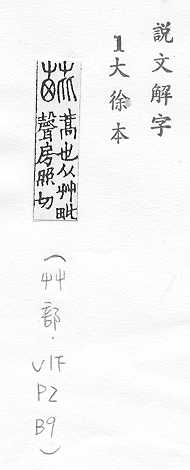 説文解字
1大徐本
蒿也从艸毗
聲房脂切
(艸部.V1F
P2
B9)